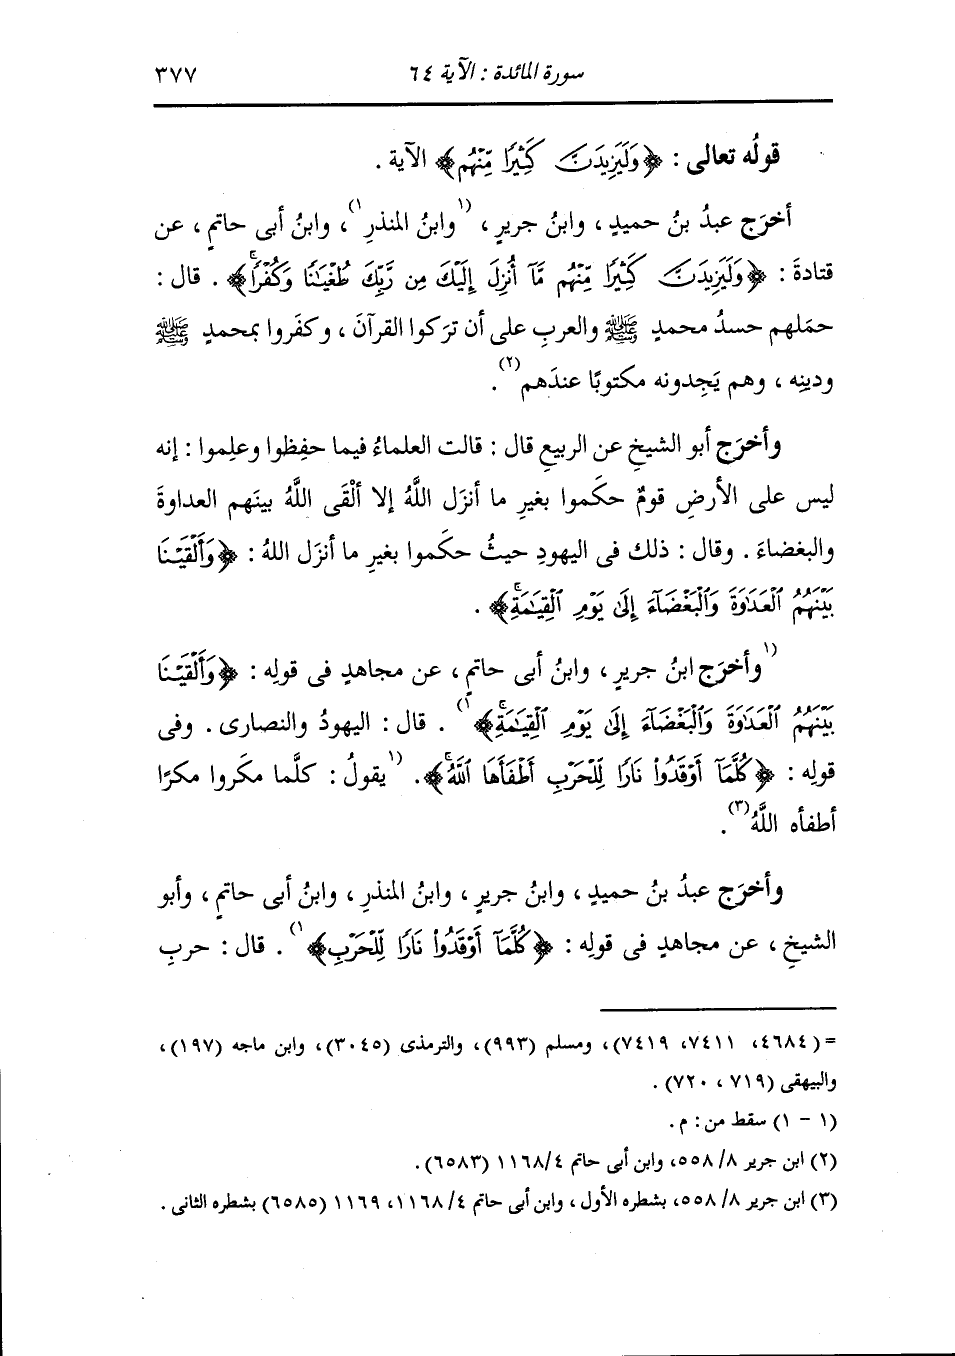 سورة المائدة : الآية ٦٤ ٣٧٧
قولُه تعالى : ﴿وَلَيَزِيدَنَّ كَثِيرًا مِّنْهُم﴾ الآية .
أخرَج عبدُ بنُ حميدٍ ، وابنُ جريرٍ ، (١وابنُ المنذرِ١) ، وابنُ أبى حاتمٍ ، عن
قتادةَ : ﴿وَلَيَزِيدَنَّ كَثِيرًا مِّنْهُم مَّآ أُنزِلَ إِلَيْكَ مِن رَّبِّكَ طُغْيَٰنًا وَكُفْرًاۚ﴾ . قال :
حمَلهم حسدُ محمدٍ ﷺ والعربِ على أن ترَكوا القرآنَ ، وكفَروا بمحمدٍ ﷺ
ودينِه ، وهم يَجِدونه مكتوبًا عندَهم(٢) .
وأخرَج أبو الشيخِ عن الربيعِ قال : قالت العلماءُ فيما حفِظوا وعلِموا : إنه
ليس على الأرضِ قومٌ حكَموا بغيرِ ما أنزَل اللَّهُ إلا ألْقَى اللَّهُ بينَهم العداوةَ
والبغضاءَ . وقال : ذلك فى اليهودِ حيثُ حكَموا بغيرِ ما أنزَل اللهُ : ﴿وَأَلْقَيْنَا
بَيْنَهُمُ ٱلْعَدَٰوَةَ وَٱلْبَغْضَآءَ إِلَىٰ يَوْمِ ٱلْقِيَٰمَةِۚ﴾ .
(١وأخرَج ابنُ جريرٍ ، وابنُ أبى حاتمٍ ، عن مجاهدٍ فى قولِه : ﴿وَأَلْقَيْنَا
بَيْنَهُمُ ٱلْعَدَٰوَةَ وَٱلْبَغْضَآءَ إِلَىٰ يَوْمِ ٱلْقِيَٰمَةِۚ﴾١) . قال : اليهودُ والنصارى . وفى
قولِه : ﴿كُلَّمَآ أَوْقَدُوا۟ نَارًا لِّلْحَرْبِ أَطْفَأَهَا ٱللَّهُۚ﴾ . (١يقولُ : كلَّما مكَروا مكرًا
أطفأه اللَّهُ(٣) .
وأخرَج عبدُ بنُ حميدٍ ، وابنُ جريرٍ ، وابنُ المنذرِ ، وابنُ أبى حاتمٍ ، وأبو
الشيخِ ، عن مجاهدٍ فى قولِه : ﴿كُلَّمَآ أَوْقَدُوا۟ نَارًا لِّلْحَرْبِ﴾١) . قال : حربِ
= (٤٦٨٤، ٧٤١١، ٧٤١٩)، ومسلم (٩٩٣)، والترمذى (٣٠٤٥)، وابن ماجه (١٩٧)،
والبيهقى (٧١٩ ، ٧٢٠) .
(١ - ١) سقط من : م .
(٢) ابن جرير ٨/ ٥٥٨، وابن أبى حاتم ١١٦٨/٤ (٦٥٨٣) .
(٣) ابن جرير ٨/ ٥٥٨، بشطره الأول ، وابن أبى حاتم ٤/ ١١٦٨، ١١٦٩ (٦٥٨٥) بشطره الثانى .